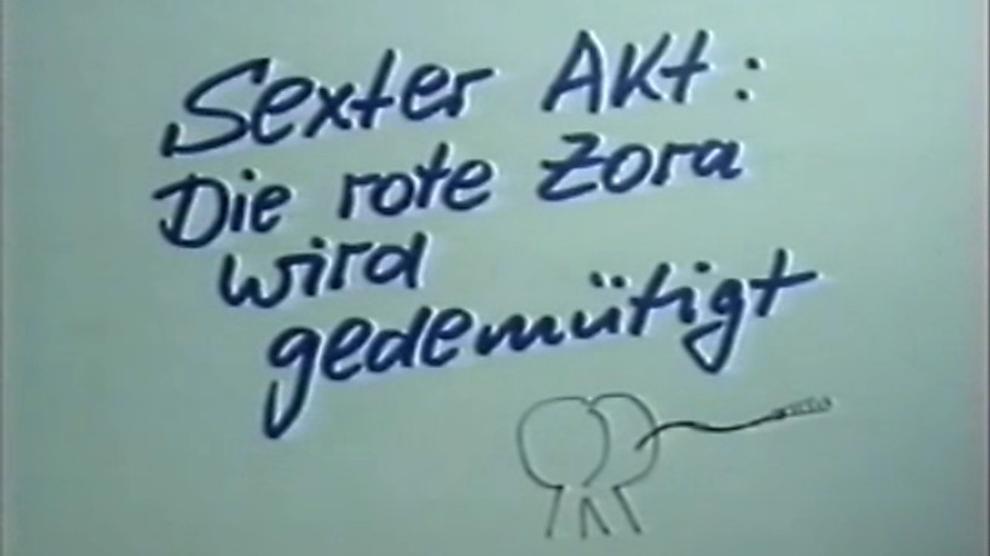 Sexter Akt:
Die rote Zora
wird
gedemütigt